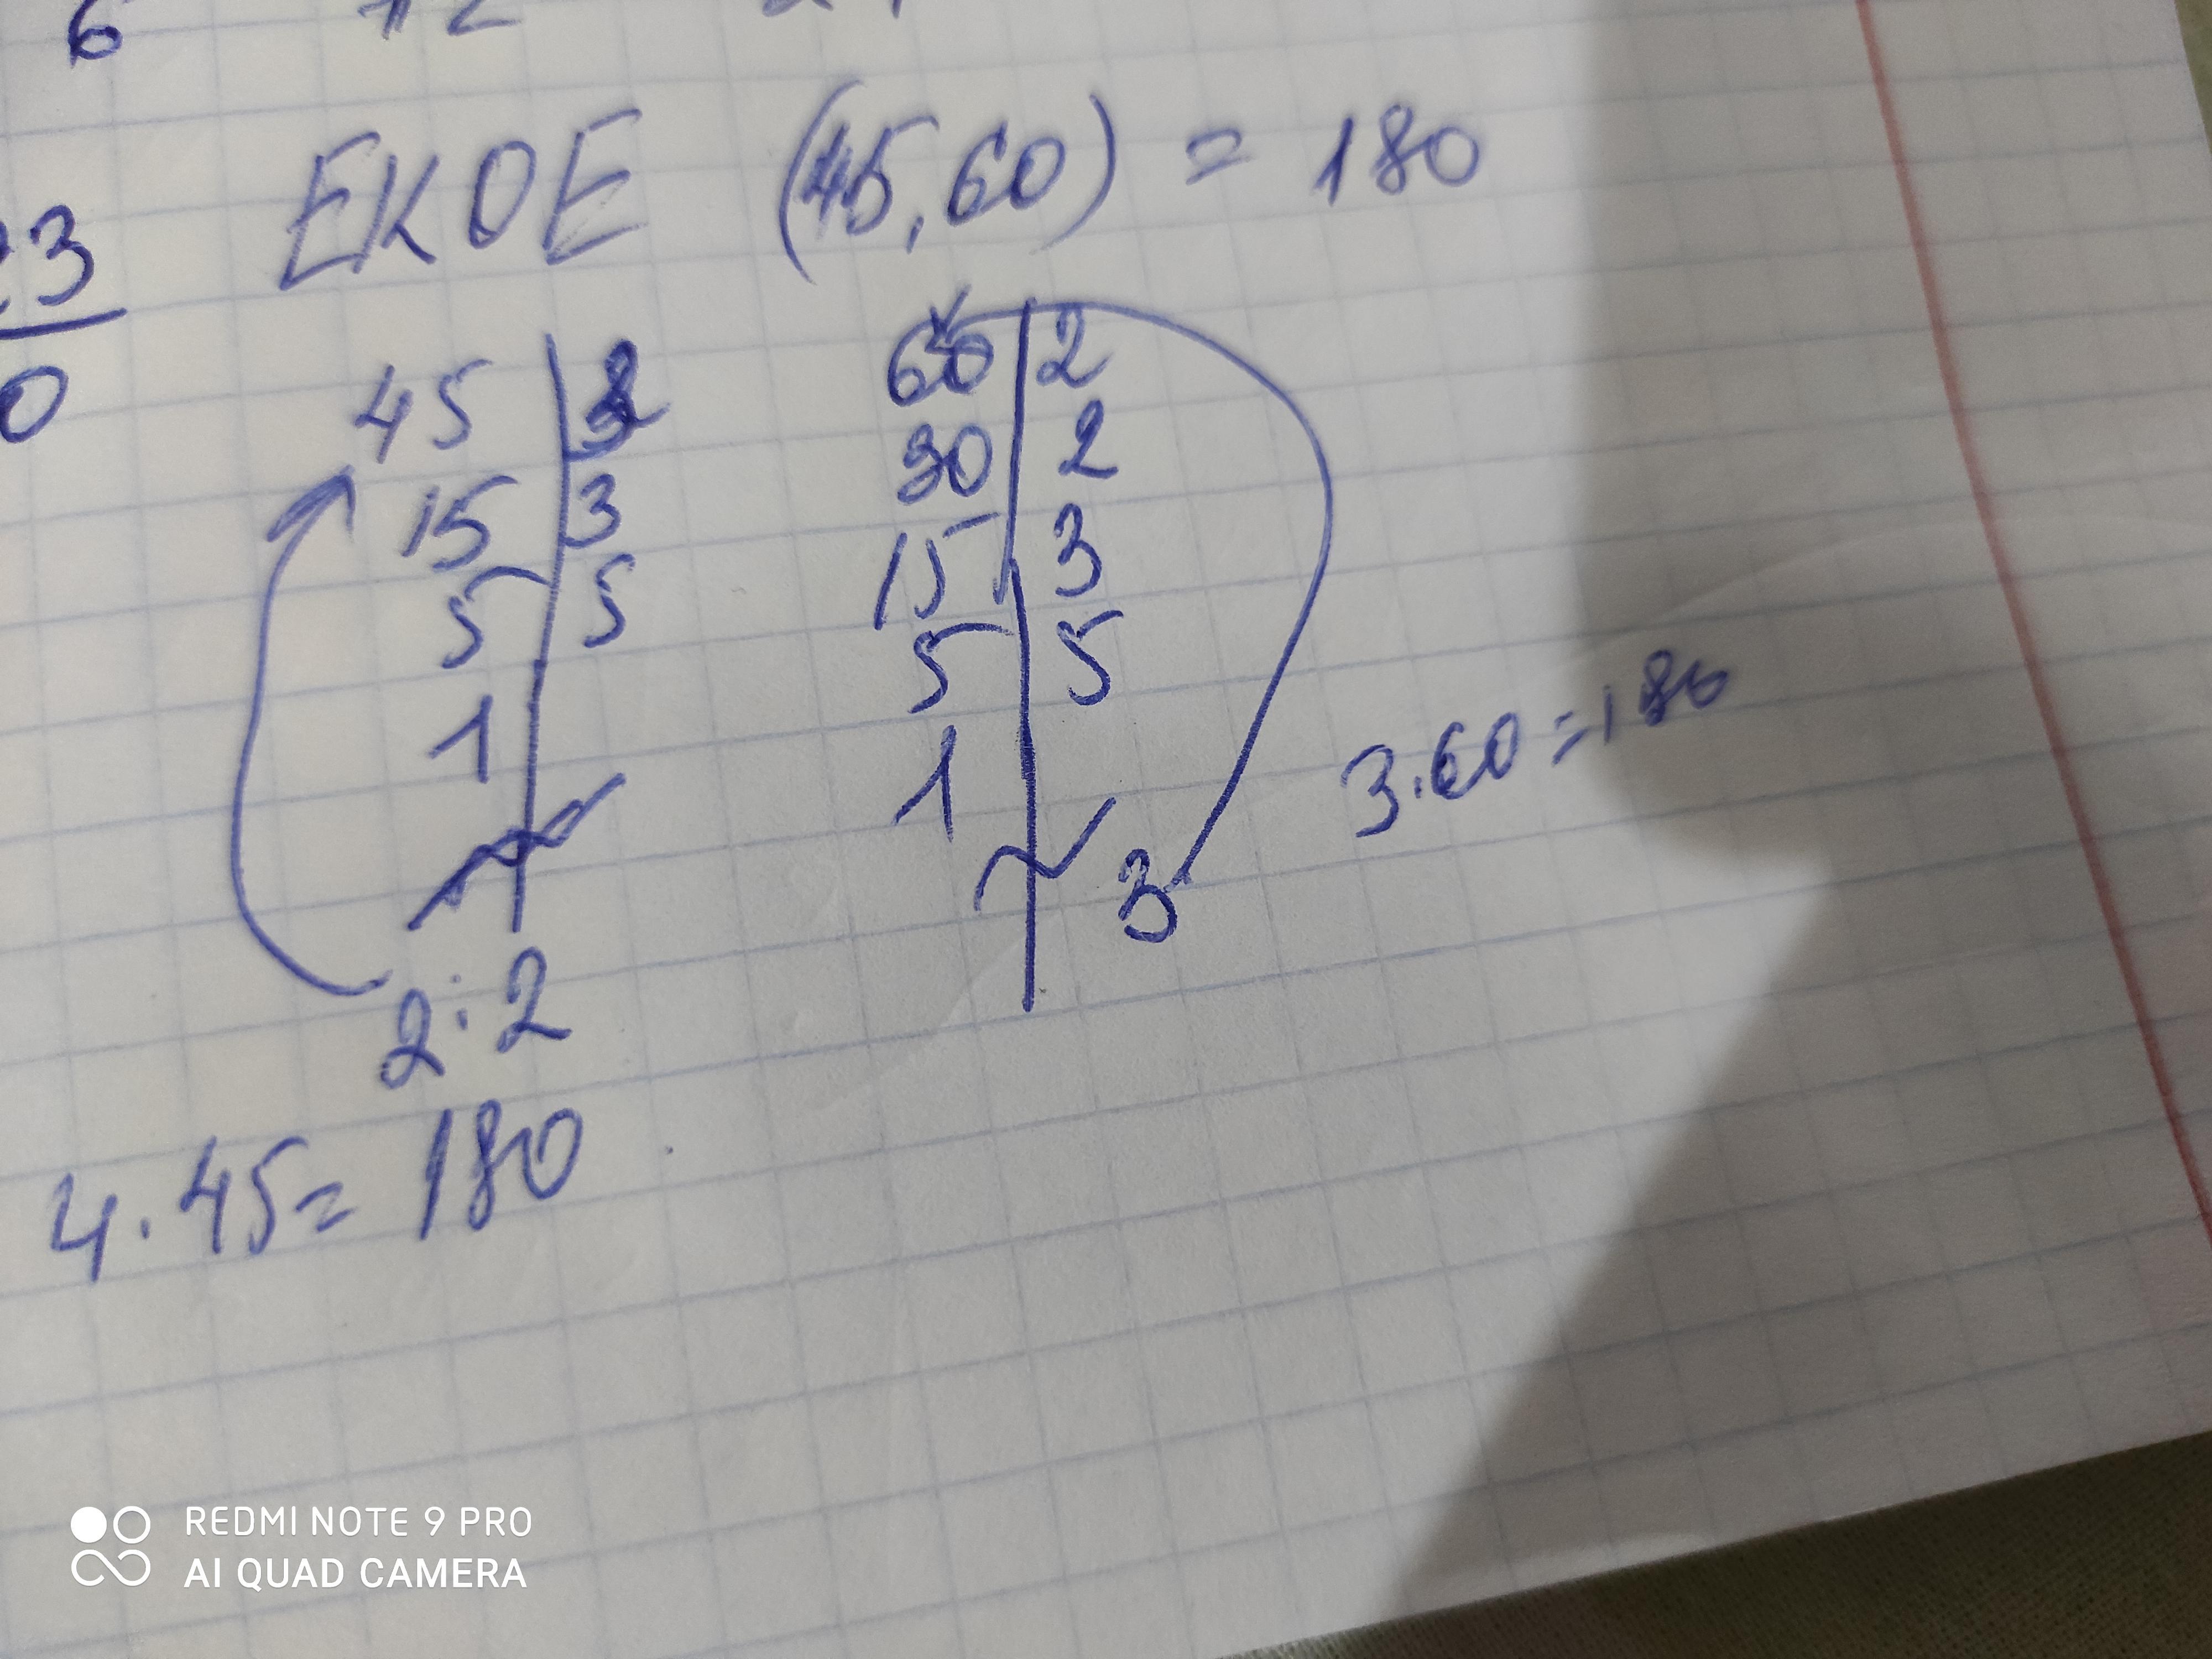 6 12
23
0
EKOE (45,60) = 180
45 3 60 2
15 3 30 2
5 5 15 3
1 5 5
1
3
3·60=180
2·2
4·45=180
REDMI NOTE 9 PRO
AI QUAD CAMERA